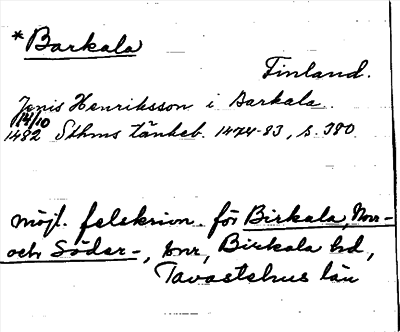 *Barkala
Finland.
Jenis Henriksson i Barkala.
14/10
1482 Sthms tänkeb. 1474-83, s. 380
möjl. felskrivn. för Birkala, Norr-
och Söder-, bnr, Birkala hd,
Tavastehus län